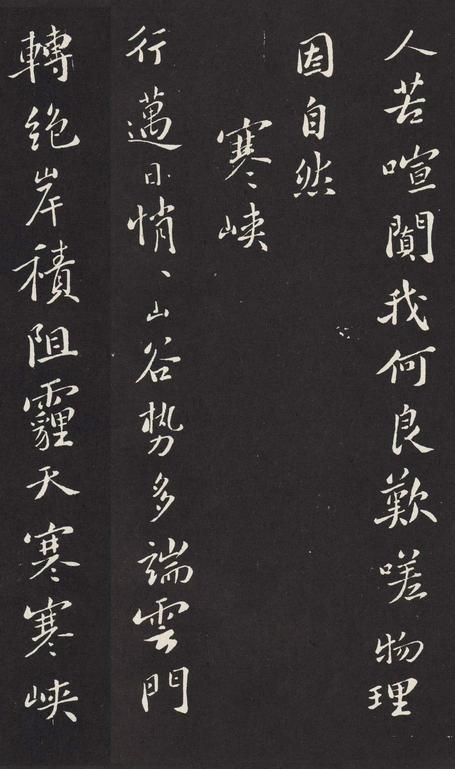 人苦喧闐我何良歎嗟物理
因自然
寒峽
行邁日悄〻山谷勢多端雲門
轉絶岸積阻霾天寒寒峽